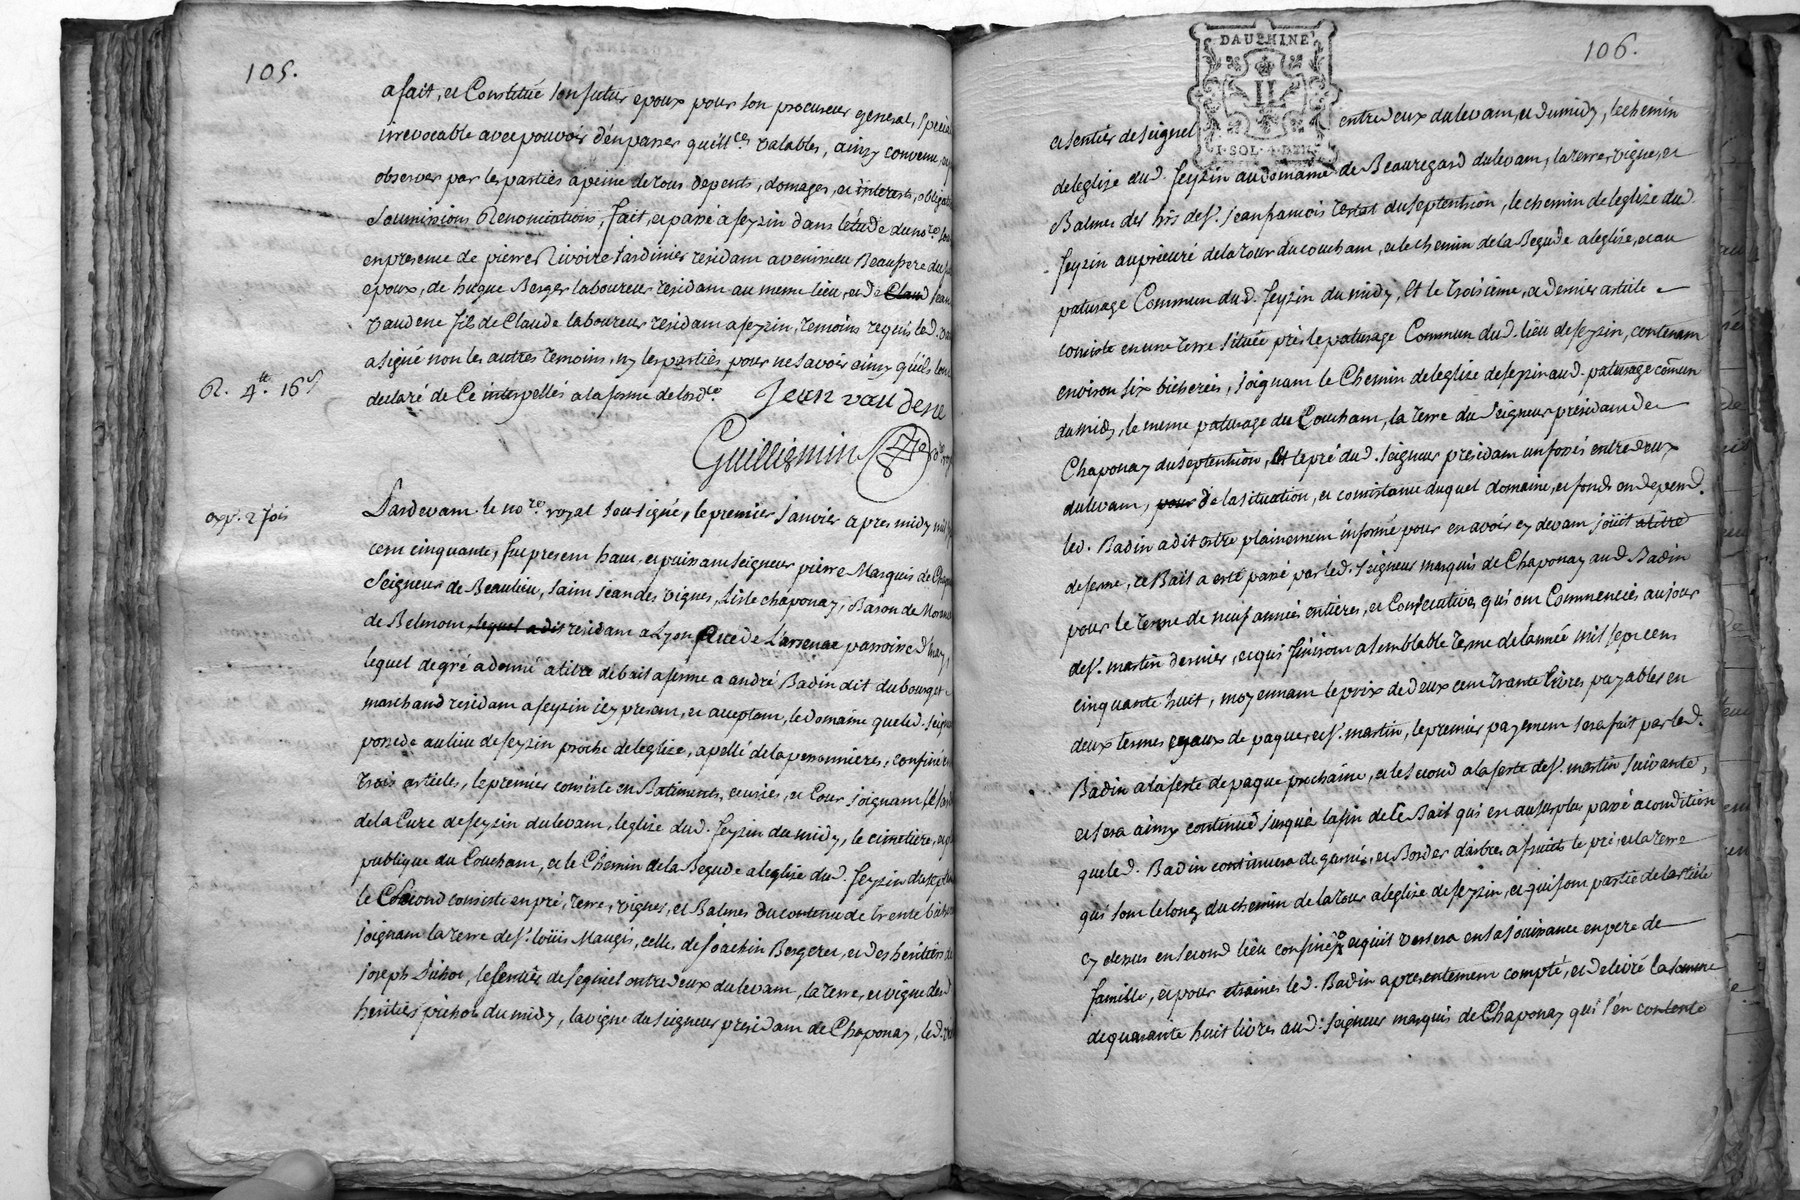 105.
a fait, et Constitué son futur epoux pour son procureur general, special
irrevocable avec pouvoir d'en passer quitt.ces valables, ainsy convenu,
observer par les parties a peine de tous depents, domages, et interests, obligations
Soumissions Renonciations, fait, et passé a feyzin dans l'etude du no.re
en presence de pierre Rivoire Jardinier residant a venissieu Beaupere du
epoux, de hugue Berger laboureur residant au meme lieu, et de Claud Jean
vaudene fils de Claude laboureur residant a feyzin, temoins requis led.
a signé non les autres temoins, ny les parties pour ne savoir ainsy qu'ils l'ont
R. 4.tt 16.s
declaré de Ce interpellés a la forme de l'ord.ce
Jean vaudene
Guilliermin
exp. 2 fois
Pardevant le no.re royal Sous-signé, le premier Janvier apres midy mil
cent cinquante, fut present haut et puissant Seigneur pierre Marquis de
Seigneur de Beaulieu, Saint Jean des vignes, Lisle chaponay, Baron de
de Belmont, lequel a dit residant a Lyon Rue de L'arsenac parroisse d'
lequel de gré a donné a titre de bail a ferme a andré Badin dit du bourg
marchand residant a feyzin icy present, et acceptant, le domaine que led. Seigneur
possede au lieu de feyzin proche de leglise, apellé de la personnieres, confiné en
trois articles, le premier consiste en Batiments, ecuries, et Cour joignant
de la Cure de feyzin du levant, leglise dud. feyzin du midy, le cimetiere,
publique du Couchant, et le Chemin de la Begude a leglise dud. feyzin
le Second consiste en pré, terre, vignes, et Balmes du contenu de trente
joignant la terre de s.r loüis Maugis, celles de Joachin Bergeret, et des heritiers
joseph Pichot, le sentier de seignel entredeux du levant, la terre, et vigne
heritiers pichot du midy, la vigne du Seigneur president de Chaponay, led.
106.
DAUPHINE
II
I·SOL·4·DEN
et sentier de seignel entredeux du levant, et du midy, le chemin
de leglise dud. feyzin au domaine de Beauregard du levant, la terre vignes, et
Balmes des hrs de s.r Jean francois restat du septentrion, le chemin de leglise dud.
feyzin au prieuré de la tour du couchant, et le chemin de la Begude a leglise, et au
paturage Commun dud. feyzin du midy, Et le troisieme, et dernier article
consiste en une terre située près le paturage Commun dud. lieu de feyzin, contenant
environ six bicherées, joignant le Chemin de leglise de feyzin aud. paturage comun
du midy, le meme paturage du Couchant, la terre du Seigneur president de
Chaponay du septentrion, Et le pré dud. Seigneur president un fossés entredeux
du levant, pour de la situation, et consistance duquel domaine, et fonds en depend.
led. Badin a dit estre plainement informé pour en avoir cy devant joüit a titre
de ferme, ce Bail a esté passé par led. Seigneur marquis de Chaponay aud. Badin
pour le terme de neuf années entieres, et Consecutives qui ont Commencées au jour
de s.t martin dernier, et qui finiront a semblable terme de lannée mil sept cent
cinquante huit, moyennant le prix de deux cent trante livres payables en
deux termes egaux de paque, et s.t martin, le premier payement sera fait par led.
Badin a la feste de paque prochaine, et le second a la feste de s.t martin suivante,
et sera ainsy continué jusqua la fin de Ce Bail qui en au surplus passé a condition
que led. Badin continuera de garnir, et Border d'arbres a fruits le pré, et la terre
qui sont le long du chemin de la tour a leglise de feyzin, et qui sont partie de larticle
cy dessus en second lieu confiné, et quil versera en sa jouissance en pere de
famille, et pour etraines led. Badin a presentement compté, et delivré la somme
de quarante huit livres aud. Seigneur marquis de Chaponay qui s'en contente